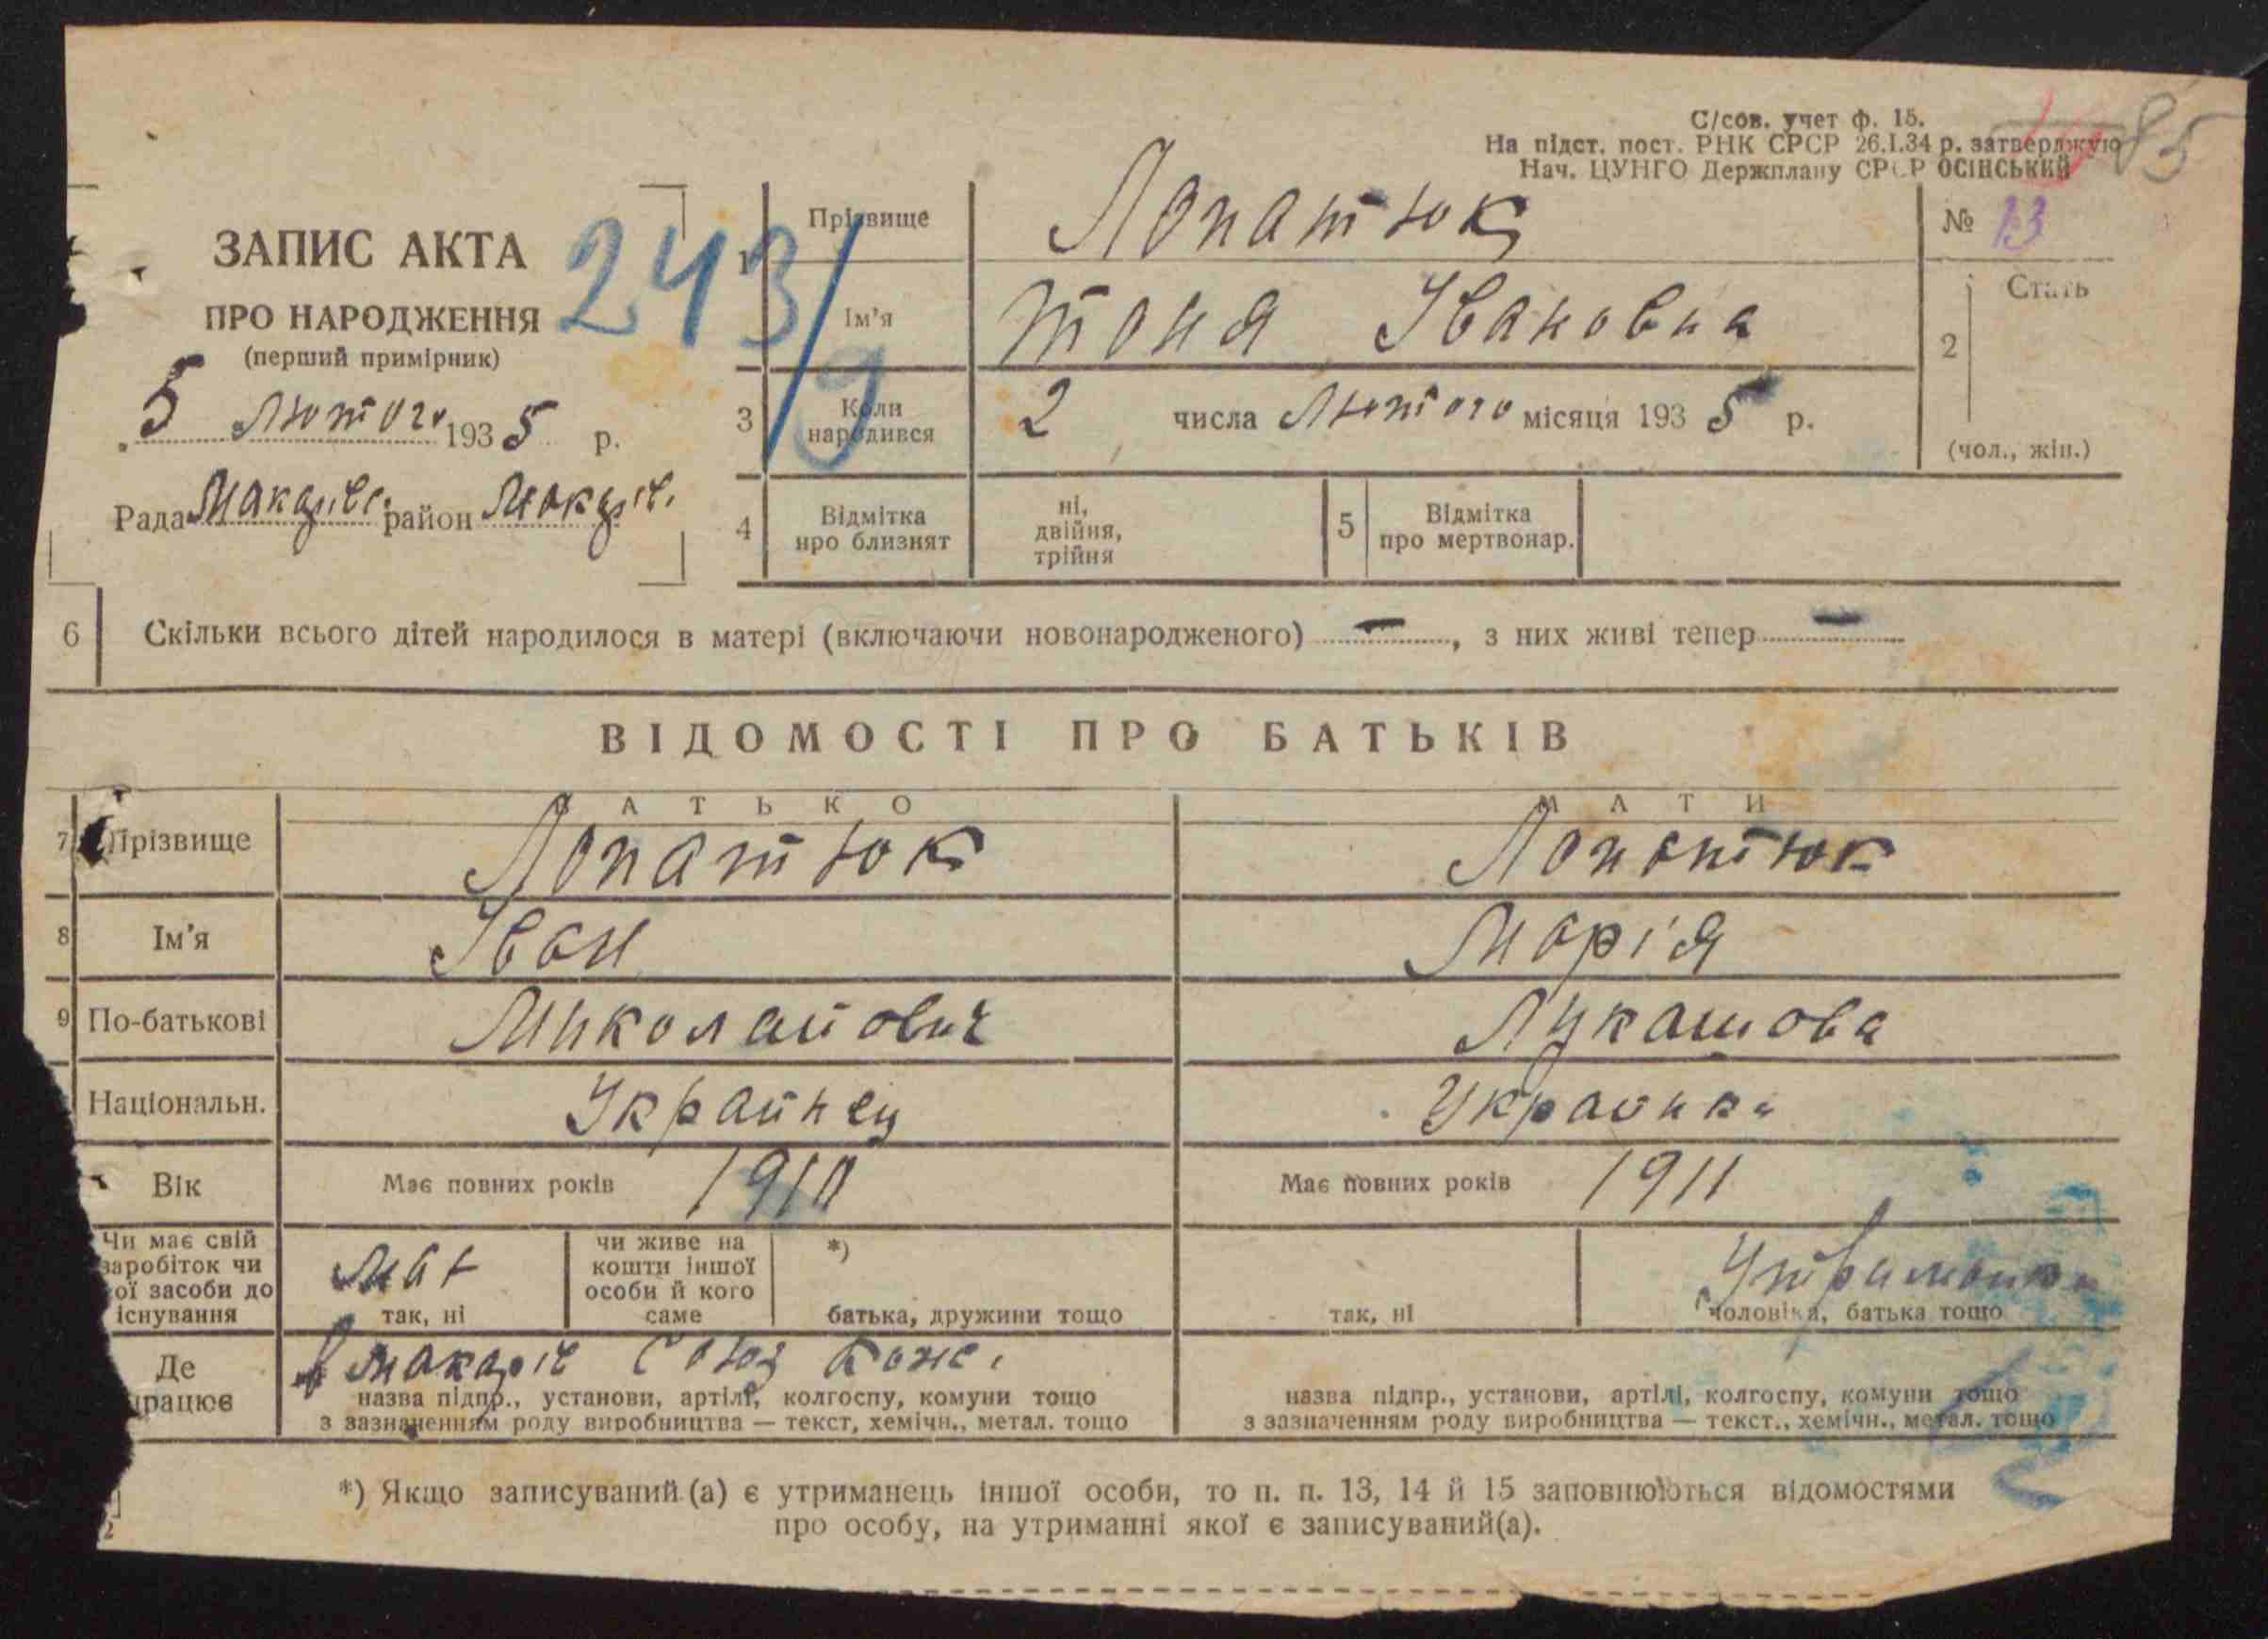 С/сов. учет ф. 15.
На підст. пост. РНК СРСР 26.І.34 р. затверджую
Нач. ЦУНГО Держплану СРСР ОСІНСЬКИЙ
85
ЗАПИС АКТА
ПРО НАРОДЖЕННЯ
(перший примірник)
243/9
5 Лютого 1935 р.
Рада Макарів. район Макарів.
1 Прізвище Лопатюк
Ім'я Тоня Івановна
№ 13
2 Стать
(чол., жін.)
3 Коли народився 2 числа Лютого місяця 1935 р.
4 Відмітка про близнят ні, двійня, трійня
5 Відмітка про мертвонар.
6 Скільки всього дітей народилося в матері (включаючи новонародженого) —, з них живі тепер —
ВІДОМОСТІ ПРО БАТЬКІВ
БАТЬКО МАТИ
7 Прізвище Лопатюк Лопатюк
8 Ім'я Іван Марія
9 По-батькові Миколайович Лукашова
Національн. Украйнец Украинка
Вік Має повних років 1910 Має повних років 1911
Чи має свій
заробіток чи
ої засоби до
існування
має
так, ні
чи живе на
кошти іншої
особи й кого
саме
*)
батька, дружини тощо
так, ні
чоловіка, батька тощо
Де
працює
в Макарів Союз
назва підпр., установи, артілі, колгоспу, комуни тощо
з зазначенням роду виробництва — текст, хемічн., метал. тощо
назва підпр., установи, артілі, колгоспу, комуни тощо
з зазначенням роду виробництва — текст., хемічн., метал. тощо
*) Якщо записуваний (а) є утриманець іншої особи, то п. п. 13, 14 й 15 заповнюються відомостями
про особу, на утриманні якої є записуваний(а).